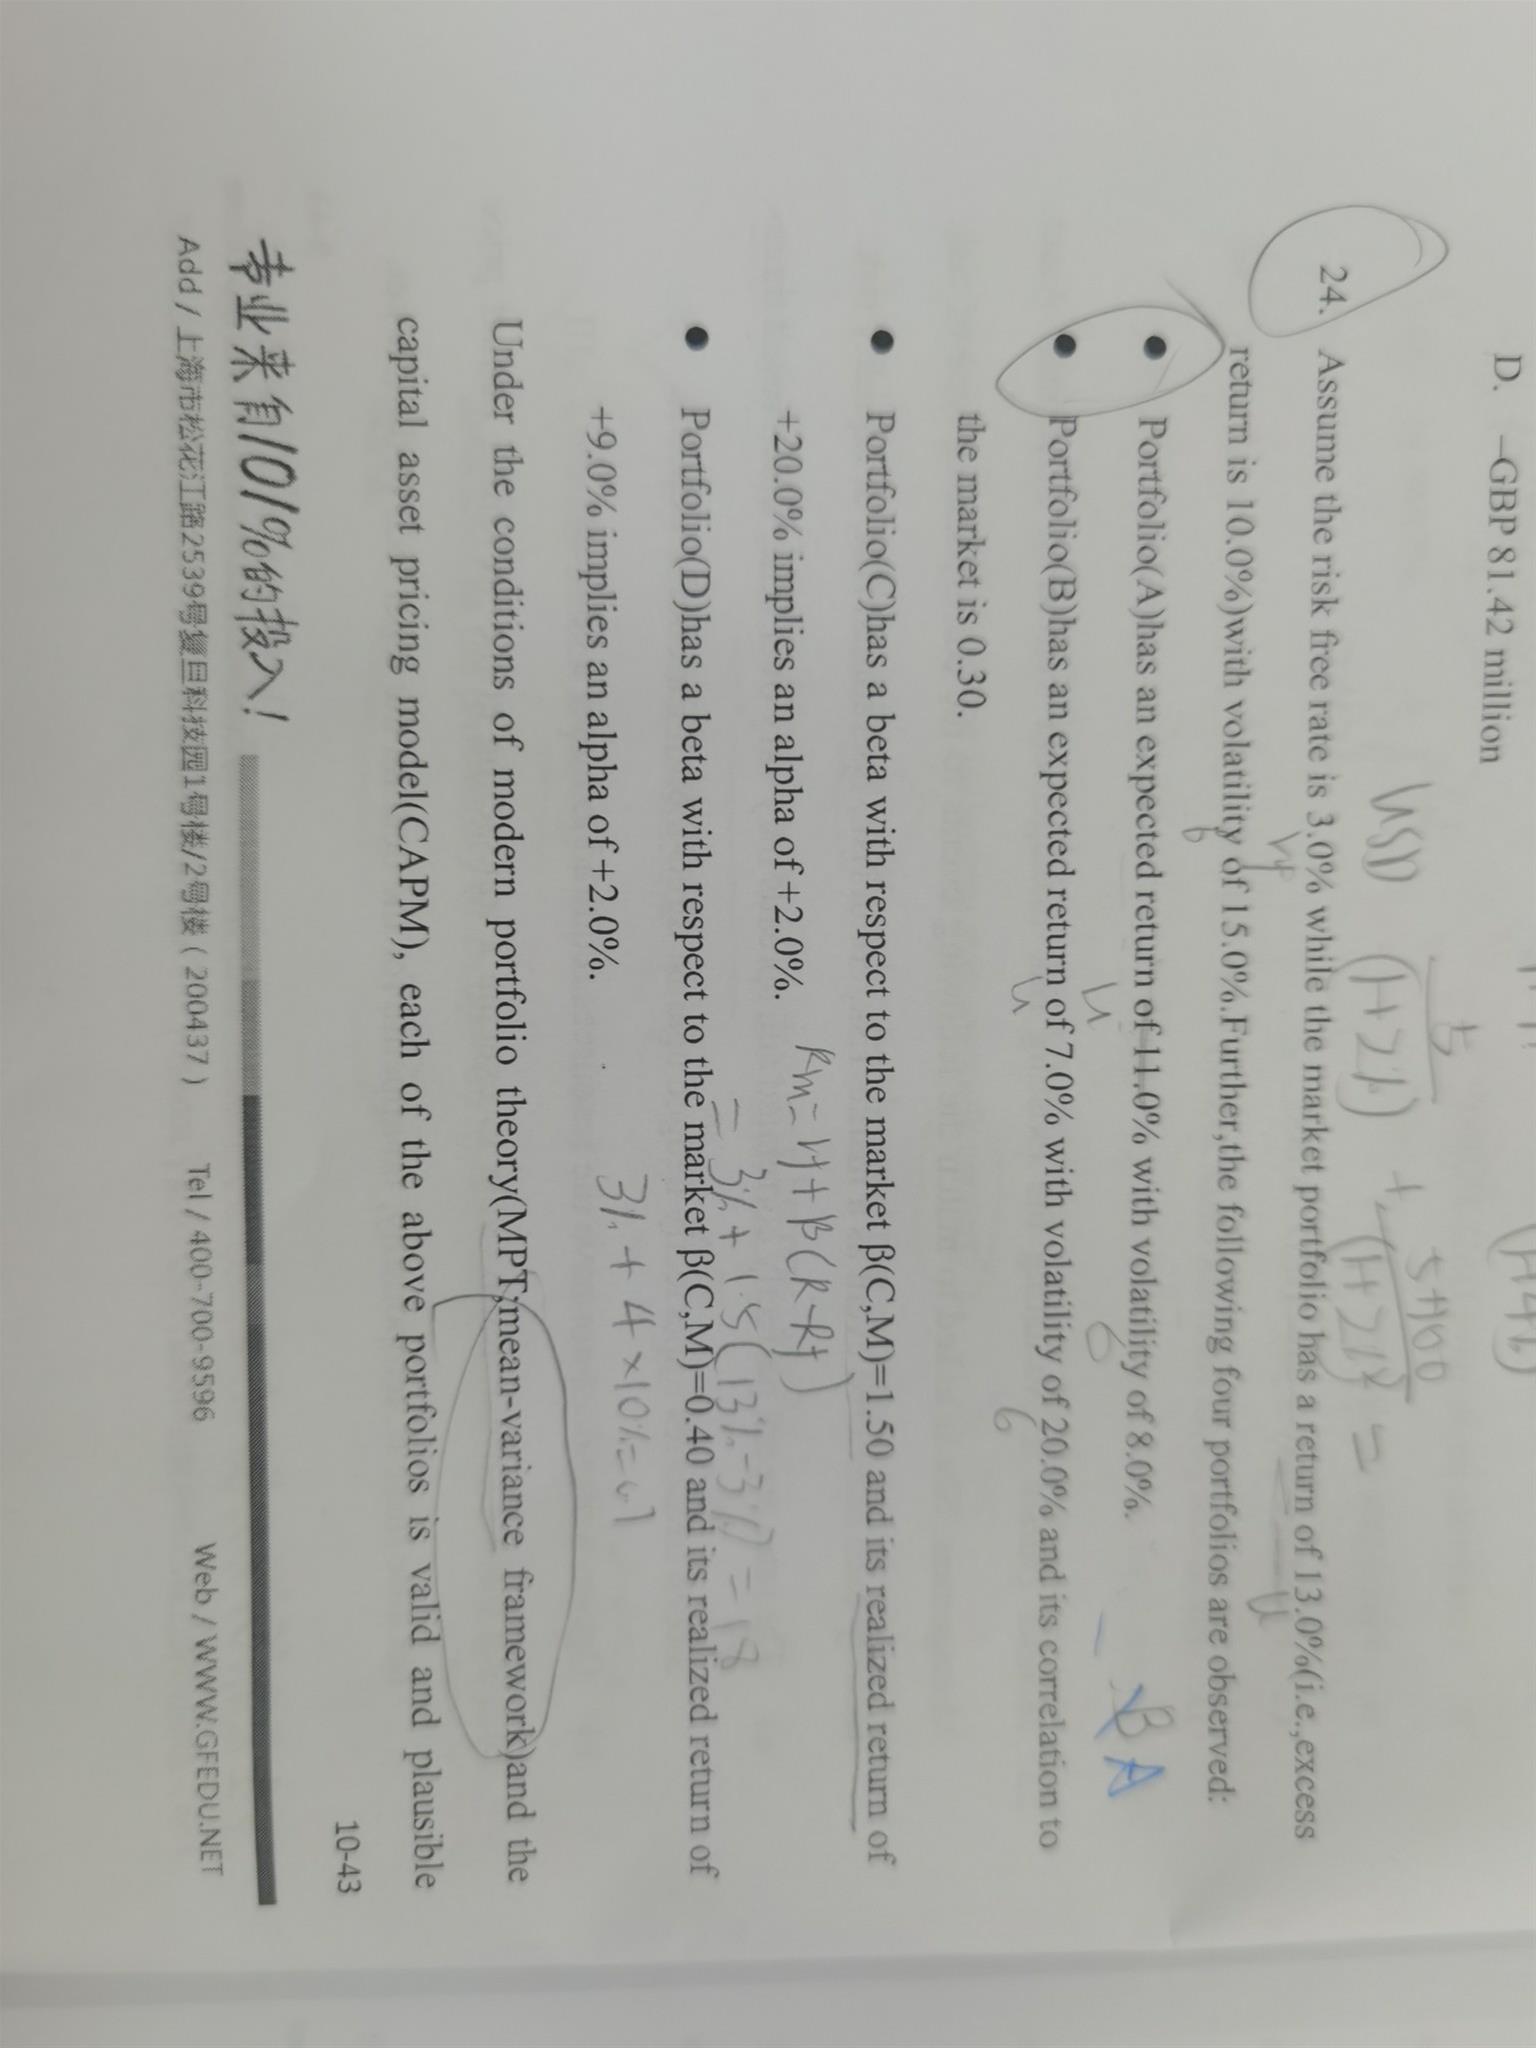 D. –GBP 81.42 million
USD 5/(1+2%) + 5+100/(1+2%)² =
24. Assume the risk free rate is 3.0% while the market portfolio has a return of 13.0%(i.e.,excess
return is 10.0%)with volatility of 15.0%.Further,the following four portfolios are observed:
● Portfolio(A)has an expected return of 11.0% with volatility of 8.0%.
B A
● Portfolio(B)has an expected return of 7.0% with volatility of 20.0% and its correlation to
the market is 0.30.
● Portfolio(C)has a beta with respect to the market β(C,M)=1.50 and its realized return of
+20.0% implies an alpha of +2.0%.
Rm = rf + β(R-Rf)
= 3% + 1.5(13%-3%) = 18
● Portfolio(D)has a beta with respect to the market β(C,M)=0.40 and its realized return of
+9.0% implies an alpha of +2.0%.
3% + 4×10%=
Under the conditions of modern portfolio theory(MPT;mean-variance framework)and the
capital asset pricing model(CAPM), each of the above portfolios is valid and plausible
10-43
专业来自101%的投入!
Add / 上海市松花江路2539号复旦科技园1号楼/2号楼 ( 200437 ) Tel / 400-700-9596 Web / WWW.GFEDU.NET